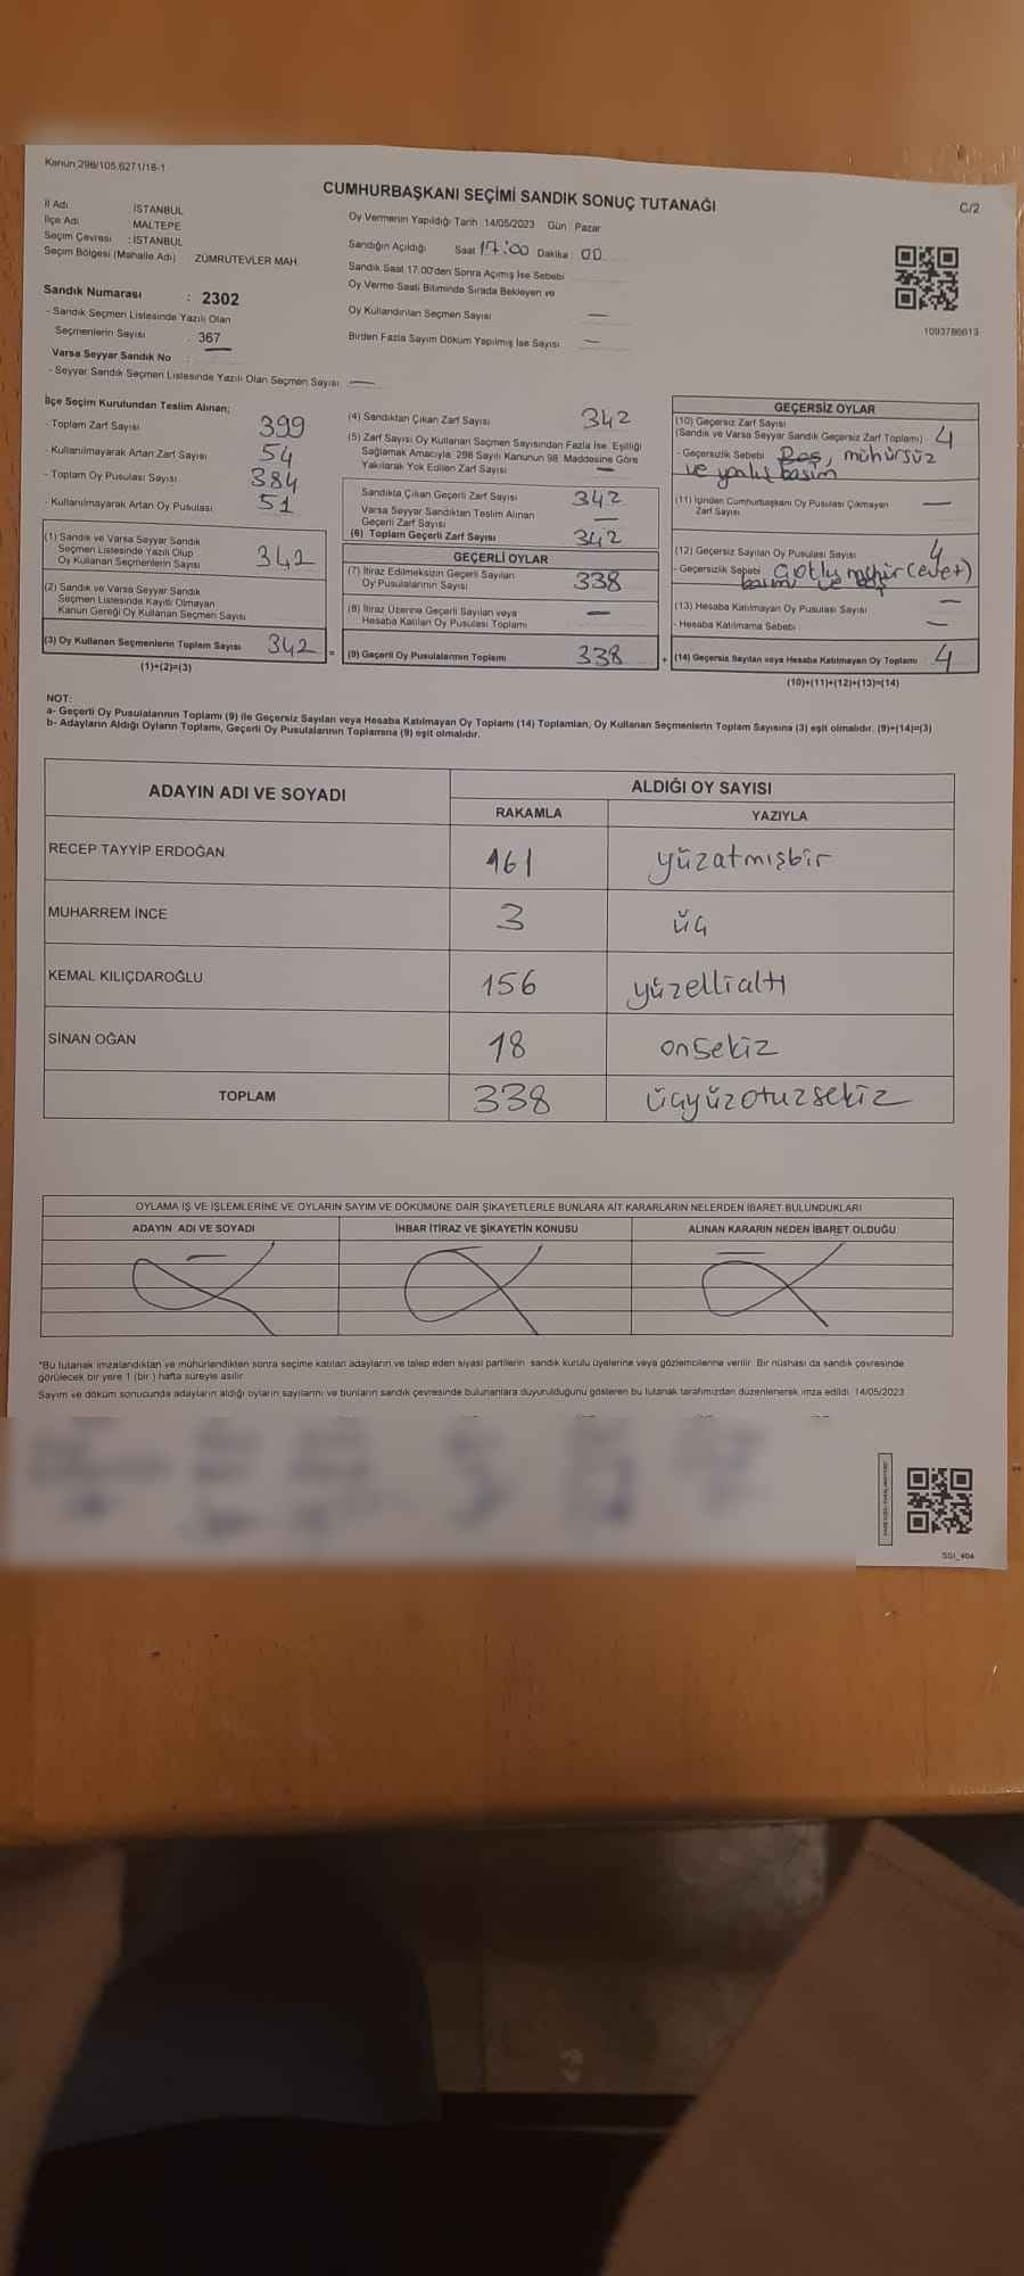 Kanun 298/105.6271/18-1
CUMHURBAŞKANI SEÇİMİ SANDIK SONUÇ TUTANAĞI
C/2
İl Adı İSTANBUL
İlçe Adı MALTEPE
Seçim Çevresi : İSTANBUL
Seçim Bölgesi (Mahalle Adı) ZÜMRÜTEVLER MAH.
Oy Vermenin Yapıldığı Tarih 14/05/2023 Gün Pazar
Sandığın Açıldığı Saat 17:00 Dakika 00
Sandık Saat 17.00'den Sonra Açımış İse Sebebi
Oy Verme Saati Bitiminde Sırada Bekleyen ve
Oy Kullandırılan Seçmen Sayısı —
Birden Fazla Sayım Döküm Yapılmış İse Sayısı —
1093786613
Sandık Numarası : 2302
- Sandık Seçmen Listesinde Yazılı Olan
Seçmenlerin Sayısı 367
Varsa Seyyar Sandık No : —
- Seyyar Sandık Seçmen Listesinde Yazılı Olan Seçmen Sayısı —
İlçe Seçim Kurulundan Teslim Alınan;
- Toplam Zarf Sayısı 399
- Kullanılmayarak Artan Zarf Sayısı 54
- Toplam Oy Pusulası Sayısı 384
- Kullanılmayarak Artan Oy Pusulası 51
(1) Sandık ve Varsa Seyyar Sandık
Seçmen Listesinde Yazılı Olup
Oy Kullanan Seçmenlerin Sayısı 342
(2) Sandık ve Varsa Seyyar Sandık
Seçmen Listesinde Kayıtlı Olmayan
Kanun Gereği Oy Kullanan Seçmen Sayısı
(3) Oy Kullanan Seçmenlerin Toplam Sayısı 342
(1)+(2)=(3)
(4) Sandıktan Çıkan Zarf Sayısı 342
(5) Zarf Sayısı Oy Kullanan Seçmen Sayısından Fazla İse, Eşitliği
Sağlamak Amacıyla, 298 Sayılı Kanunun 98. Maddesine Göre
Yakılarak Yok Edilen Zarf Sayısı —
Sandıkta Çıkan Geçerli Zarf Sayısı 342
Varsa Seyyar Sandıktan Teslim Alınan
Geçerli Zarf Sayısı —
(6) Toplam Geçerli Zarf Sayısı 342
GEÇERLİ OYLAR
(7) İtiraz Edilmeksizin Geçerli Sayılan
Oy Pusulalarının Sayısı 338
(8) İtiraz Üzerine Geçerli Sayılan veya
Hesaba Katılan Oy Pusulası Toplamı —
= (9) Geçerli Oy Pusulalarının Toplamı 338
GEÇERSİZ OYLAR
(10) Geçersiz Zarf Sayısı
(Sandık ve Varsa Seyyar Sandık Geçersiz Zarf Toplamı) 4
- Geçersizlik Sebebi Boş, mühürsüz
ve yanlış basım
(11) İçinden Cumhurbaşkanı Oy Pusulası Çıkmayan
Zarf Sayısı —
(12) Geçersiz Sayılan Oy Pusulası Sayısı 4
- Geçersizlik Sebebi mühür (evet)
basımı ve boş
(13) Hesaba Katılmayan Oy Pusulası Sayısı —
- Hesaba Katılmama Sebebi —
+ (14) Geçersiz Sayılan veya Hesaba Katılmayan Oy Toplamı 4
(10)+(11)+(12)+(13)=(14)
NOT:
a- Geçerli Oy Pusulalarının Toplamı (9) ile Geçersiz Sayılan veya Hesaba Katılmayan Oy Toplamı (14) Toplamları, Oy Kullanan Seçmenlerin Toplam Sayısına (3) eşit olmalıdır. (9)+(14)=(3)
b- Adayların Aldığı Oyların Toplamı, Geçerli Oy Pusulalarının Toplamına (9) eşit olmalıdır.
ADAYIN ADI VE SOYADI ALDIĞI OY SAYISI
RAKAMLA YAZIYLA
RECEP TAYYİP ERDOĞAN 161 yüzatmışbir
MUHARREM İNCE 3 üç
KEMAL KILIÇDAROĞLU 156 yüzellialtı
SİNAN OĞAN 18 onsekiz
TOPLAM 338 üçyüzotuzsekiz
OYLAMA İŞ VE İŞLEMLERİNE VE OYLARIN SAYIM VE DÖKÜMÜNE DAİR ŞİKAYETLERLE BUNLARA AİT KARARLARIN NELERDEN İBARET BULUNDUKLARI
ADAYIN ADI VE SOYADI İHBAR İTİRAZ VE ŞİKAYETİN KONUSU ALINAN KARARIN NEDEN İBARET OLDUĞU
*Bu tutanak imzalandıktan ve mühürlendikten sonra seçime katılan adayların ve talep eden siyasi partilerin sandık kurulu üyelerine veya gözlemcilerine verilir. Bir nüshası da sandık çevresinde
görülecek bir yere 1 (bir) hafta süreyle asılır.
Sayım ve döküm sonucunda adayların aldığı oyların sayılarını ve bunların sandık çevresinde bulunanlara duyurulduğunu gösteren bu tutanak tarafımızdan düzenlenerek imza edildi. 14/05/2023
SSI_404